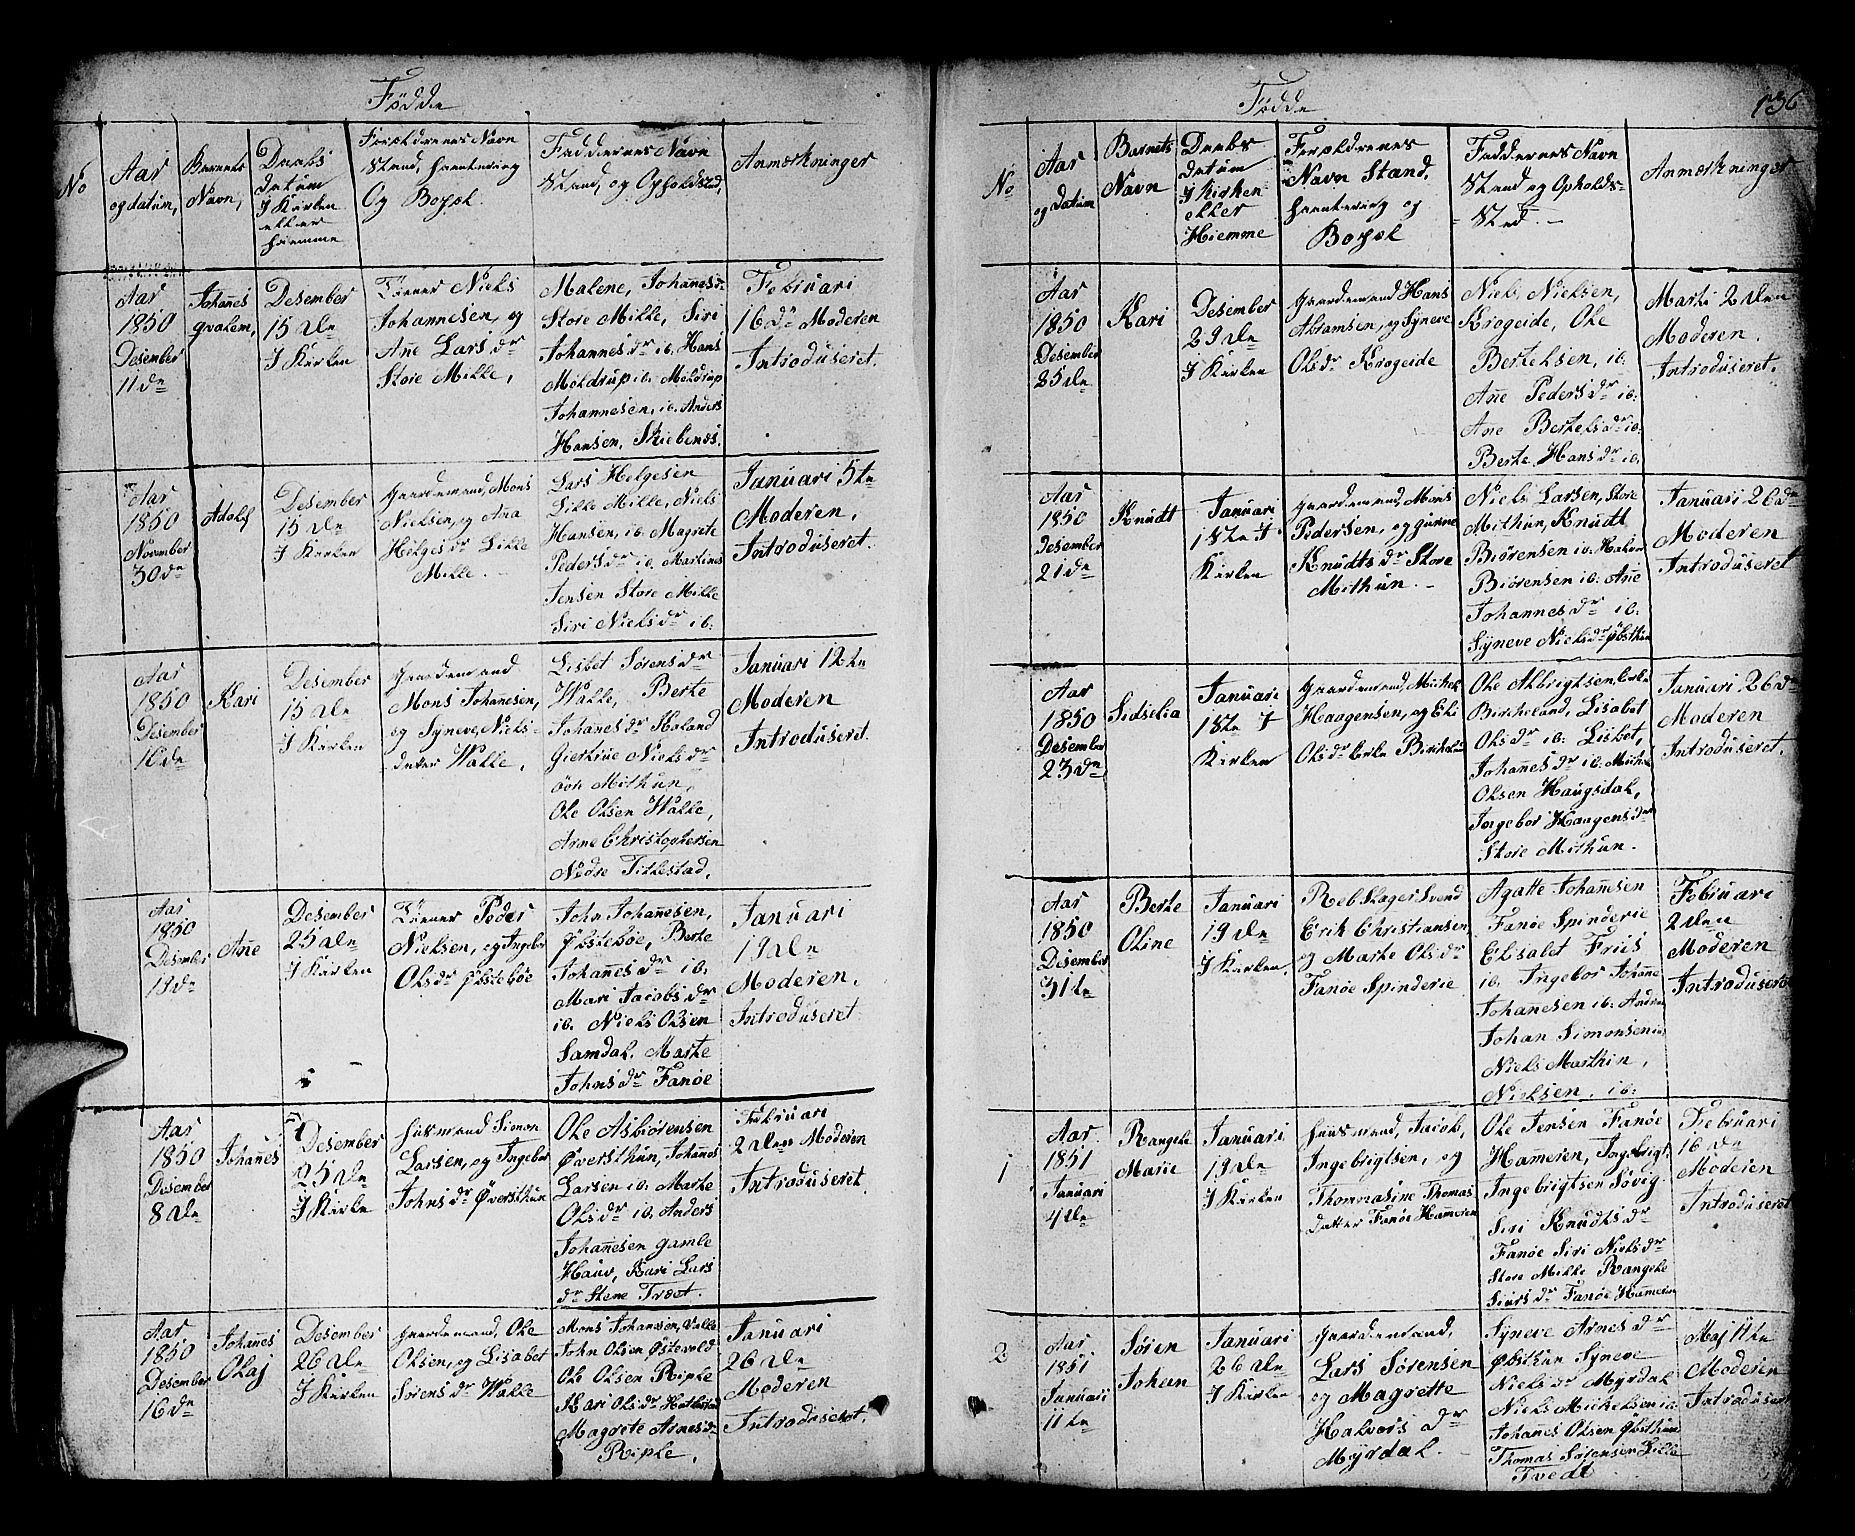 Fødde
No
Aar
og datum,
Barnets
Navn,
Daabs
datum
I Kirken
eller
hiemme
Forældrenes Navn
Stand, haantering
Og Bopæl.
Faddernes Navn
Stand, og Opholdsted,
Anmærkninger
Aar
1850
Desember
11de
Johañes
Desember
15 Den
I Kirken
Niels
Johannesen, og
Añe Lars dr
Store Milde,
Malene, Johañesdr
Store Milde, Siri
Johannes dr ib. Hans
Moldrup ib. Moldrup
Johannesen, ib. Anders
Hansen, Skiebenæs.
Februari
16de Moderen
Introduseret.
Aar
1850
November
30de
Adolf
Desember
15 Den
I Kirken
gaardemand, Mons
Nielsen, og Ana
Helges dr Lille
Milde. -
Lars Helgesen
Lille Milde, Niels
Hansen, ib. Magrete
Pedersdr ib. Martines
Jensen Store Milde
Siri Niels dr ib.
Januari 5te
Moderen,
Introduseret.
Aar
1850
Desember
10de
Kari
Desember
15 Den
I Kirken
gaardemand
Mons Johanesen,
og Syneve, Niels-
dater Walle,
Lisbet Sørensdr
Walle, Berte
Johañes dr Holand
Giertrue Niels dr
Mithun,
Ole Olsen Walle,
Arne Christophersen
Nedre Titlestad,
Januari 12te
Moderen
Introduseret.
Aar
1850
Desember
Añe
Desember
25 Den
I Kirken
Peder
Nielsen, og Ingebor
Olsdr Østebøe
John Johañesen,
Østebøe, Berte
Johañes dr ib.
Mari Jacobs dr
ib. Niels Olsen
Samdal. Marte
Johns dr Fanøe
Januari
19 De
Moderen.
Introduseret.
Aar
1850
Desember
8 De
Johañes
Desember
25 De
I Kirken
huusmand Simon
Larsen, og Ingebor
Johns dr Øversthun
Ole Asbiørensen
Øversthun, Johañes
Larsen ib. Marte
Olsdr ib. Anders
Johañesen gamle
Hauv, Kari Lars
dr Stene Træet.
Februari
2 Den Moderen
Introduseret.
Aar
1850
Desember
16 De
Johañes
Olaj
Desember
26 De
I Kirken
gaardemand, Ole
Olsen, og Lisabet
Sørens dr Walle
Mons Johansen, Valle
John Olsen Østevold
Ole Olsen Riple
Kari Olsdr
Magrete Arnesdr
Riple.
Januari
26 De
Moderen
Introduseret.
Fødde
136
No
Aar
og datum
Barnets
Navn
Daabs
datum
I Kirken
eller
Hiemme
Forældrenes
Navn Stand,
haantering og
Bopæl
Faddernes Navn
Stand og Opholds-
- Sted. -
Anmærkninger
Aar
1850
Desember
25 De
Kari
Desember
29 De
I Kirken
gaardemand Hans
Abramsen, og Syneve
Olsdr Krogeide
Niels, Nielsen,
Krogeide, Ole
Bertelsen, ib.
Añe Peders dr ib.
Ane Bertels dr ib.
Berte Hans dr ib.
Marti 2 Den
Moderen.
Introduseret.
Aar
1850
Desember
21 de
Knudt
Januari
1ste I
Kirken
gaardemand, Mons
Pedersen, og gunne
Knudts dr Store
Mithun. -
Niels Larsen, Store
Mithun, Knudt
Biørensen ib. Halvor
Biørensen ib. Añe
Johannes dr ib.
Syneve Niels dr Øvsthun
Januari 26 de
Moderen
Introduseret
Aar
1850
Desember
23 de
Sidselia
Januari
1ste I
Kirken
gaardemand, Michel
Haagensen, og Eli
Olsdr Birkeland
Ole Albrigtsen,
Birkeland, Lisabet
Olsdr ib. Lisbet,
Johañes dr ib.
Olsen Haugsdal,
Ingebor Haagens dr
Store Mithun.
Januari 26 de
Moderen
Introduseret.
Aar
1850
Desember
31 te
Berte
Oline
Januari
19 De
I Kirken.
Reb Slager Svend
Erik Christiansen
og Marte Olsdr
Fanøe Spinderie
Agatte Johañesen
Fanøe Spinderie
Elisabet Friis
ib. Ingebor Johañe
Johanesen ib. Andreas
Johan Simonsen ib
Niels Marthin,
Nielsen. ib.
Februari
2 Den
Moderen
Introduseret
1
Aar
1851
Januari
4 De
Rangele
Marie
Januari
19 De
I Kirken
huusmand, Jacob,
Ingebrigtsen, og
Thommasine Thomas
datter Fanøe Hameren
Ole Jensen Fanøe
Hameren, Ingebrigt,
Ingebrigtsen Søvig
Siri Knudts dr
Fanøe Siri Niels dr
Store Milde Rangele
Siurs dr Fanøe Hameren
Februari
16 de
Moderen
Introduseret
2
Aar
1851
Januari
11 te
Søren
Johan
Januari
26 De
I Kirken
gaardemand,
Lars Sørensen
og Magrette
Halvors dr
Myrdal.
Syneve Arnes dr
Øvsthun Syneve
Niels dr Myrdal
Niels Mickelsen ib
Johanes Olsen Øvsthun
Thomas Sørensen Lille
Tvedt
Maj 11te
Moderen
Introduseret